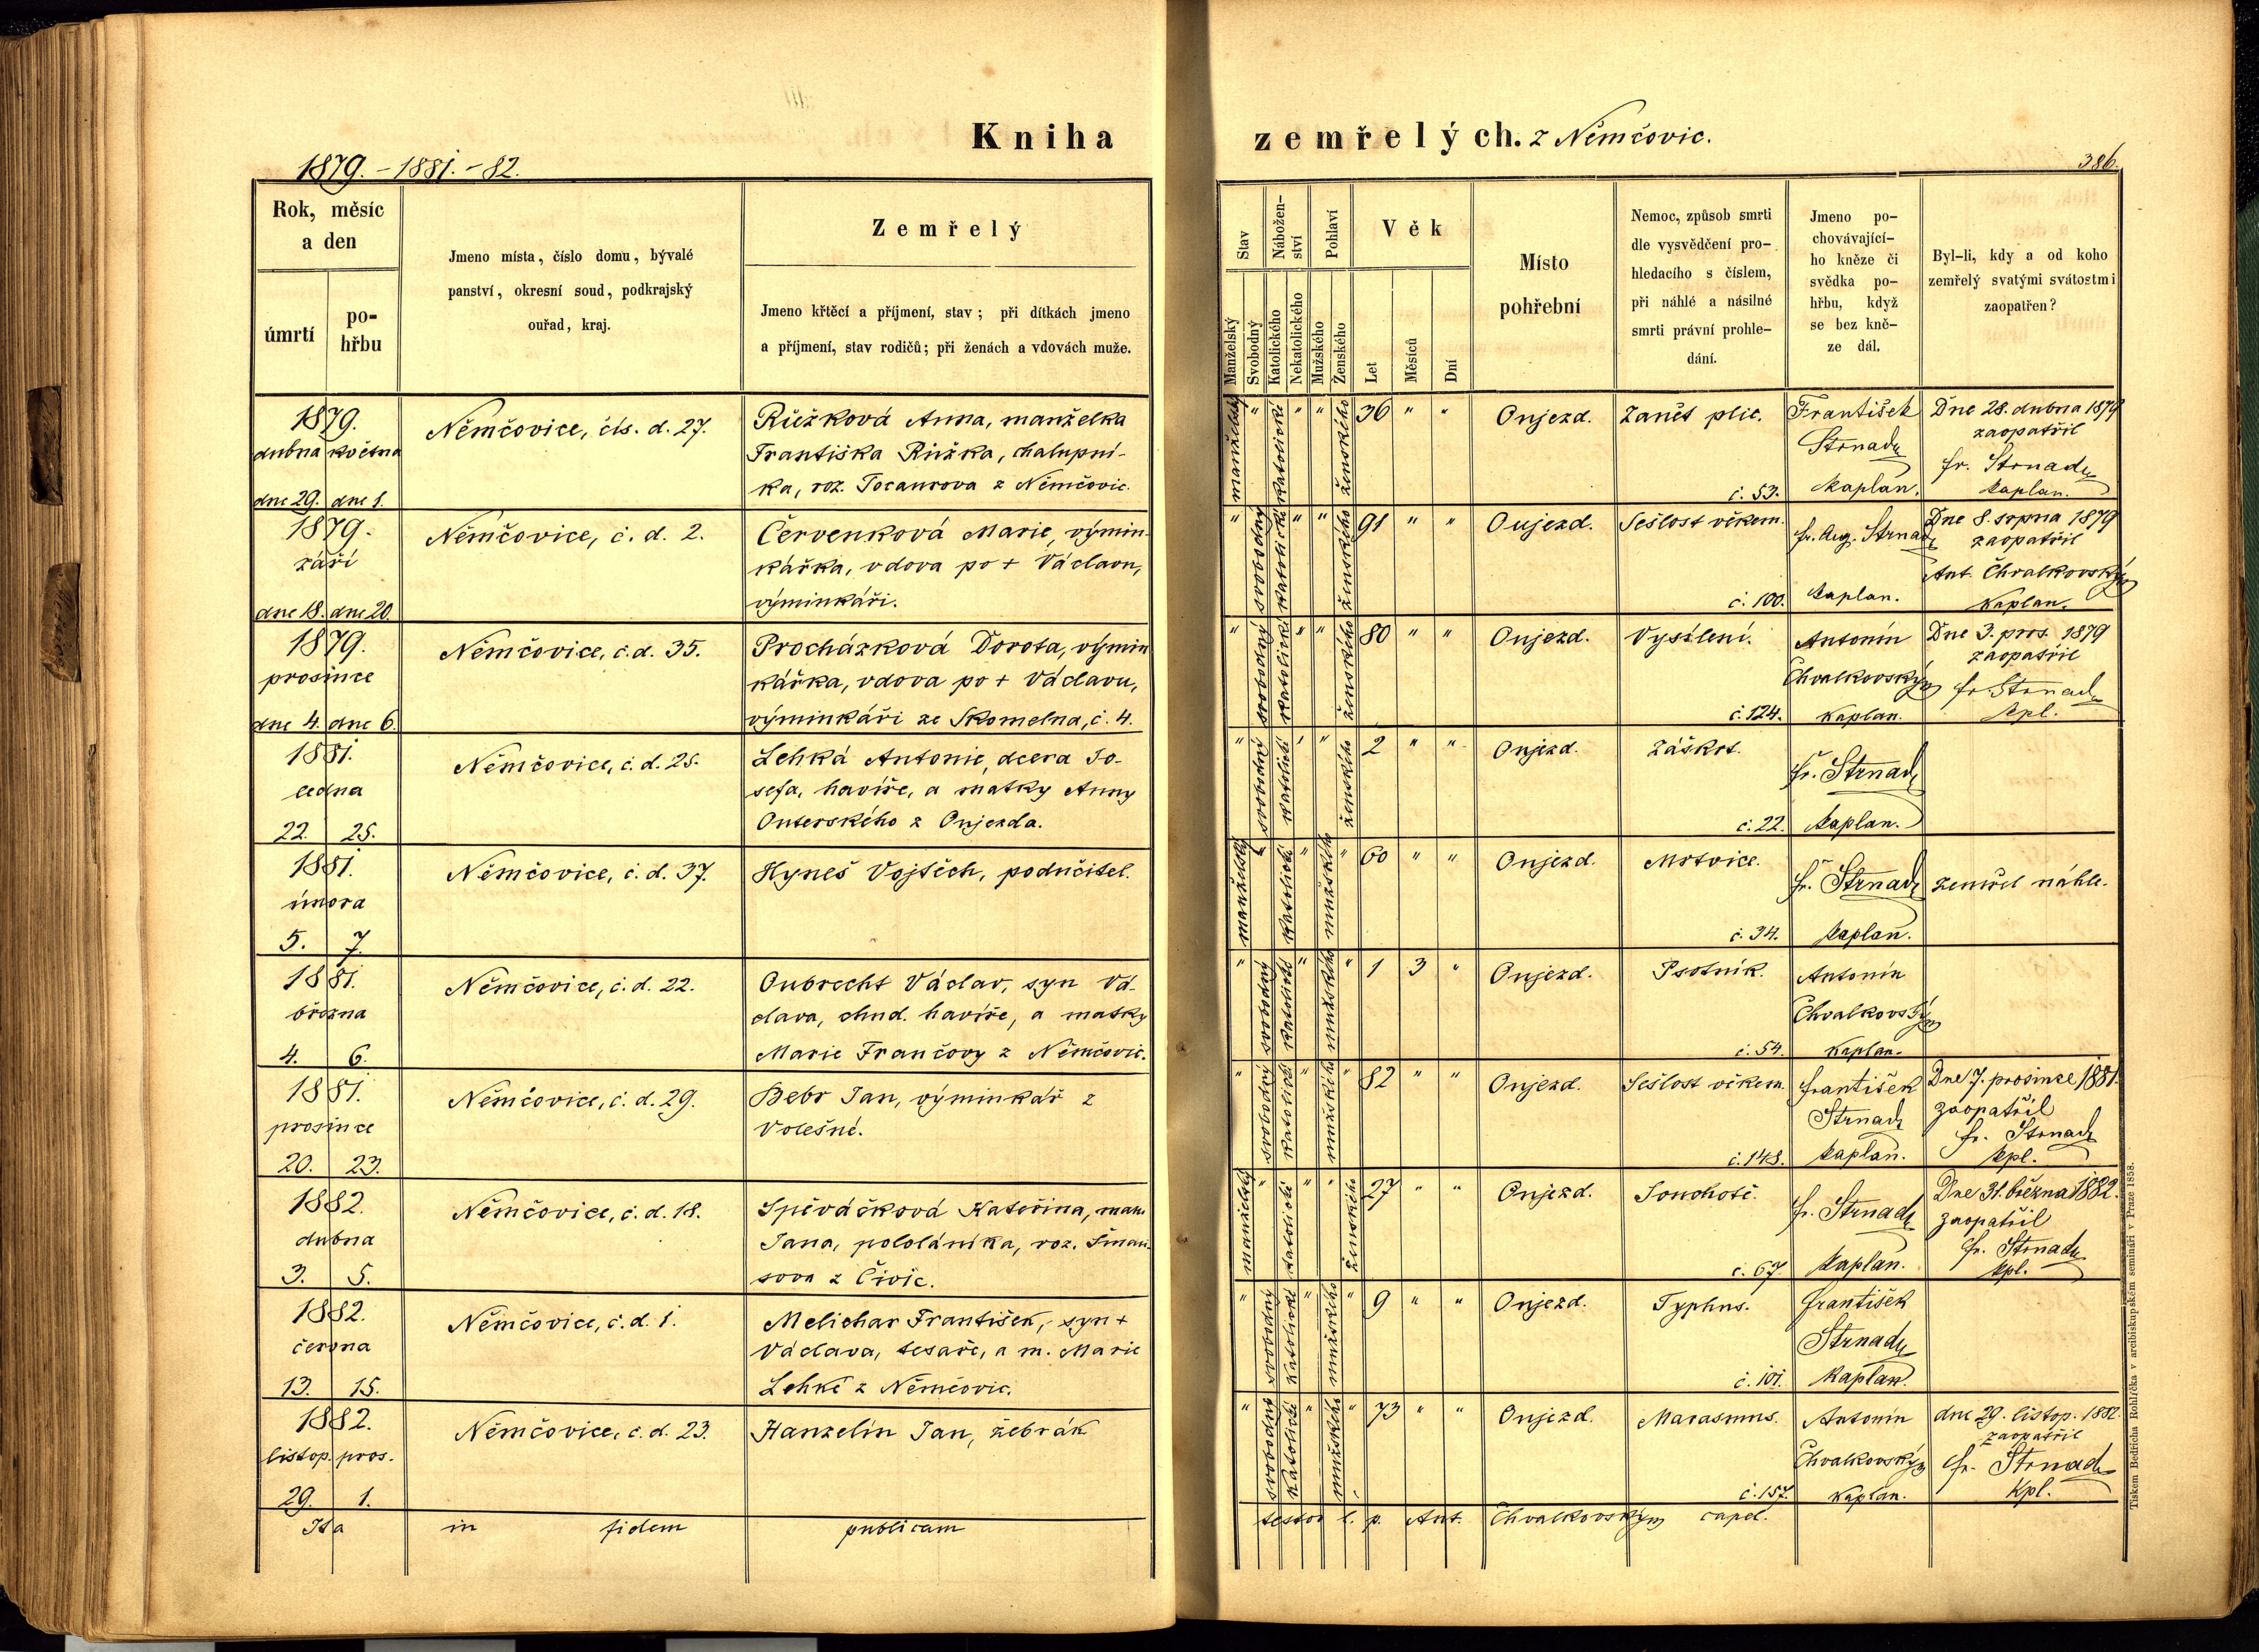 Kniha
1879. - 1881. - 82.
Rok, měsíc
a den
úmrtí
po-
hřbu
Jmeno místa, číslo domu, bývalé
panství, okresní soud, podkrajský
ouřad, kraj.
Zemřelý
Jmeno křtěcí a příjmení, stav; při dítkách jmeno
a příjmení, stav rodičů; při ženách a vdovách muže.
1879.
dubna května
dne 29. dne 1.
Němčovice, čís. d. 27.
Růžková Anna, manželka
Františka Růžka, chalupní-
ka, roz. z Němčovic.
1879.
září
dne 18. dne 20.
Němčovice, č. d. 2.
Červenková Marie, výmin-
kářka, vdova po + Václavu,
výminkáři.
1879.
prosince
dne 4. dne 6.
Němčovice, č. d. 35.
Procházková Dorota, výmin
kářka, vdova po + Václavu,
výminkáři ze Skomelna, č. 4.
1881.
ledna
22. 25.
Němčovice, č. d. 25.
Lehká Antonie, dcera Jo-
sefa, havíře, a matky Anny
Outerského z Oujezda.
1881.
února
5. 7.
Němčovice, č. d. 37.
Hyneš Vojtěch, podučitel.
1881.
března
4. 6.
Němčovice, č. d. 22.
Oubrecht Václav, syn Vá-
clava, chud. havíře, a matky
Marie Frančovy z Němčovic.
1881.
prosince
20. 23.
Němčovice, č. d. 29.
Bebr Jan, výminkář z
Volešné.
1882.
dubna
3. 5.
Němčovice, č. d. 18.
Spěváčková Kateřina, man.
Jana, pololáníka, roz.
z Čivic.
1882.
června
13. 15.
Němčovice, č. d. 1.
Melichar František, syn +
Václava, tesaře, a m. Marie
Lehké z Němčovic.
1882.
listop. pros.
29. 1.
Němčovice, č. d. 23.
Hanzelín Jan, žebrák
Ita in fidem publicam
zemřelých. z Němčovic.
386.
Stav
Nábožen-
ství
Pohlaví
Věk
Manželský
Svobodný
Katolického
Nekatolického
Mužského
Ženského
Let
Měsíců
Dní
Místo
pohřební
Nemoc, způsob smrti
dle vysvědčení pro-
hledacího s číslem,
při náhlé a násilné
smrti právní prohle-
dání.
Jmeno po-
chovávající-
ho kněze či
svědka po-
hřbu, když
se bez kně-
ze dál.
Byl-li, kdy a od koho
zemřelý svatými svátostmi
zaopatřen?
manželský " katolické " " ženského 36 " " Oujezd. Zánět plic.
č. 53.
František
Strnad
kaplan.
Dne 28. dubna 1879
zaopatřil
fr. Strnad
kaplan.
" svobodný katolické " " ženského 91 " " Oujezd. Sešlost věkem.
č. 100.
fr. Aug. Strnad
kaplan.
Dne 8. srpna 1879
zaopatřil
Ant. Chvalkovský
kaplan.
" svobodný katolické " " ženského 80 " " Oujezd. Vysílení.
č. 124.
Antonín
Chvalkovský
kaplan.
Dne 3. pros. 1879
zaopatřil
fr. Strnad
kpl.
" svobodný katolické " " ženského 2 " " Oujezd. Záškrt.
č. 22.
fr. Strnad
kaplan.
manželský " katolické " mužského " 60 " " Oujezd. Mrtvice.
č. 34.
fr. Strnad
kaplan.
zemřel náhle.
" svobodný katolické " mužského " 1 3 " Oujezd. Psotník.
č. 54.
Antonín
Chvalkovský
kaplan.
" svobodný katolické " mužského " 82 " " Oujezd. Sešlost věkem.
č. 148.
František
Strnad
kaplan.
Dne 7. prosince 1881.
zaopatřil
fr. Strnad
kpl.
manželský " katolické " " ženského 27 " " Oujezd. Souchotě.
č. 67.
fr. Strnad
kaplan.
Dne 31. března 1882.
zaopatřil
fr. Strnad
kpl.
" svobodný katolické " mužského " 9 " " Oujezd. Typhus.
č. 101.
František
Strnad
kaplan.
" svobodný katolické " mužského " 73 " " Oujezd. Marasmus.
č. 157.
Antonín
Chvalkovský
kaplan.
dne 29. listop. 1882.
zaopatřil
fr. Strnad
kpl.
testor l. p. Ant. Chvalkovský capel.
Tiskem Bedřicha Rohlíčka v arcibiskupském semináři v Praze 1858.